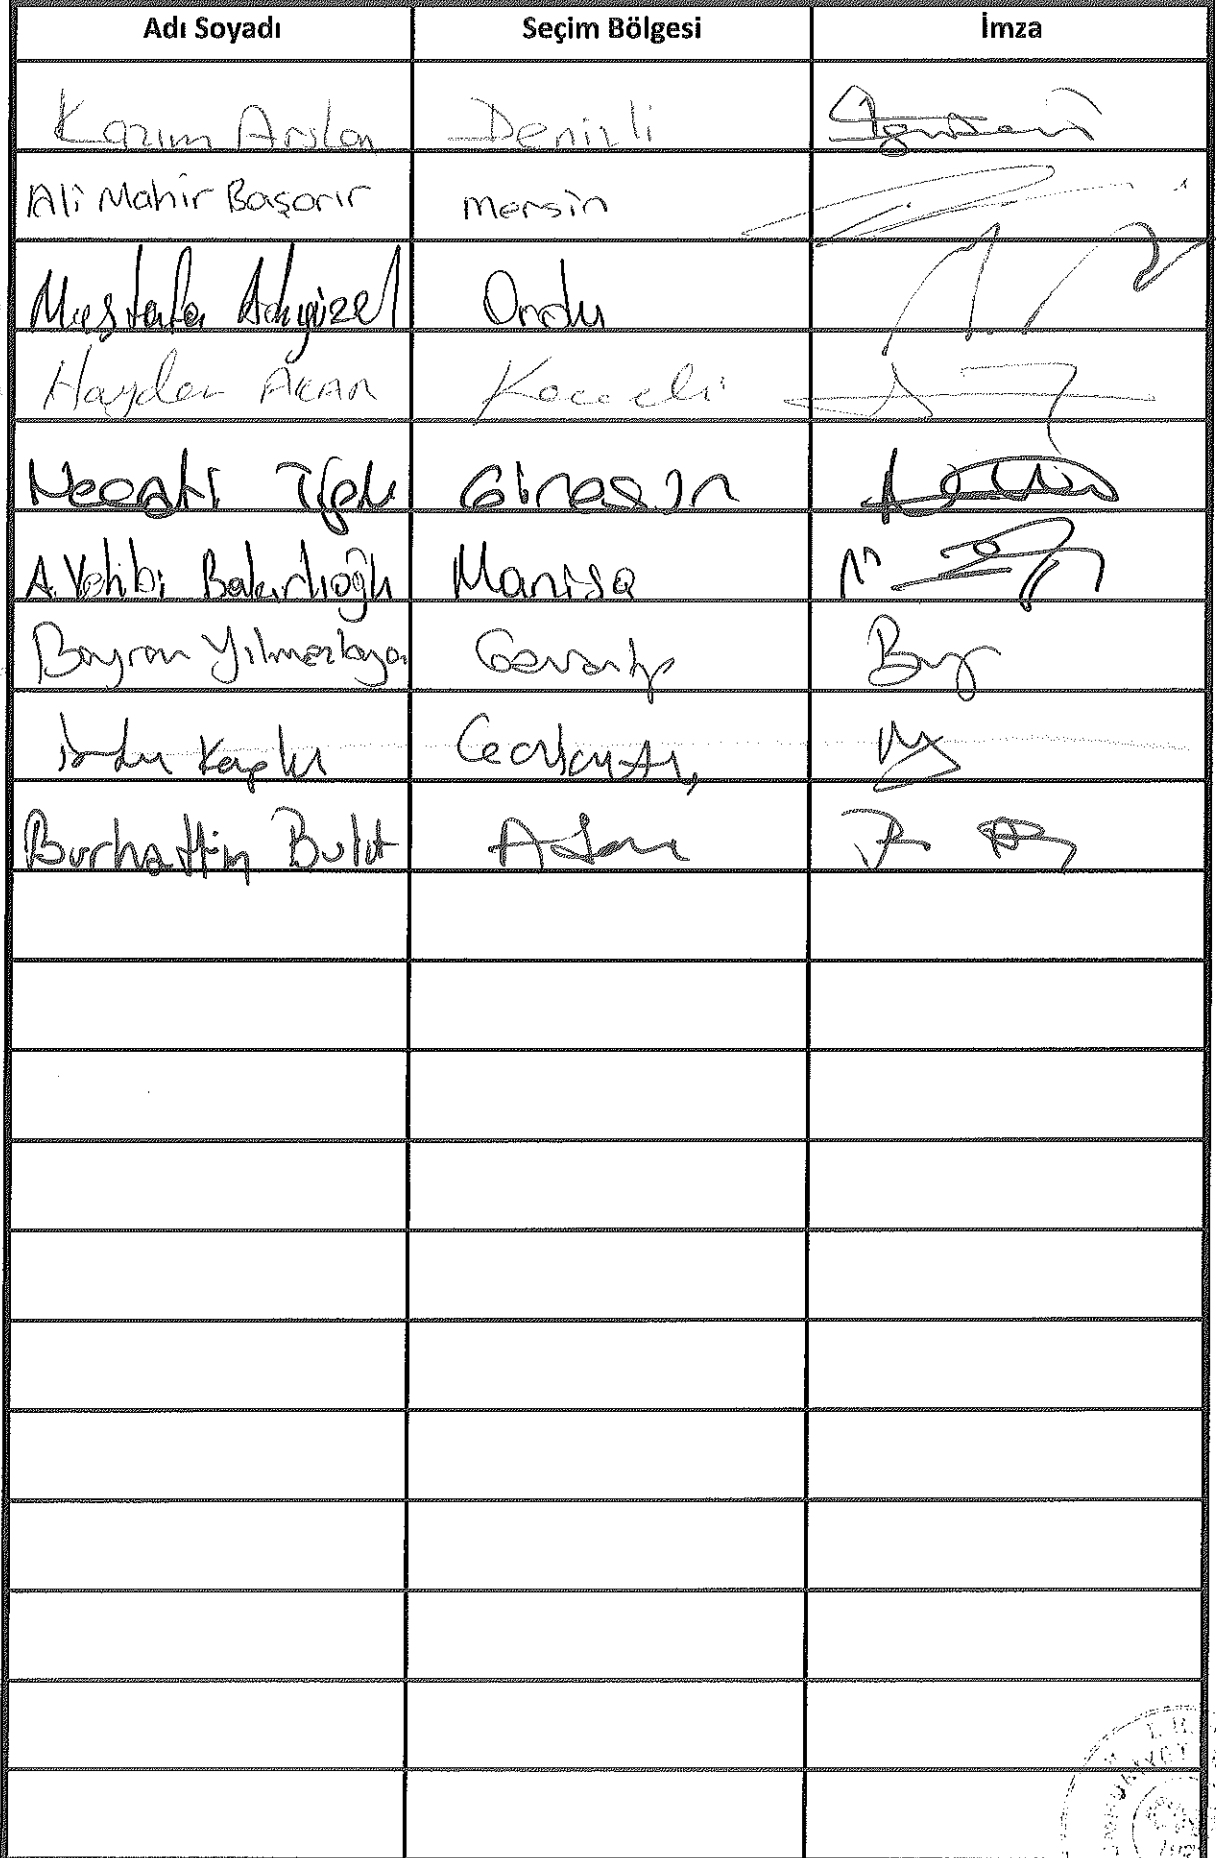 Adı Soyadı Seçim Bölgesi İmza
Kazım Arslan Denizli
Ali Mahir Başarır Mersin
Mustafa Adıgüzel Ordu
Haydar Akar Kocaeli
Necati Tığlı Giresun
A. Vehbi Bakırlıoğlu Manisa
Bayram Yılmazkaya Gaziantep
İrfan Kaplan Gaziantep
Burhanettin Bulut Adana